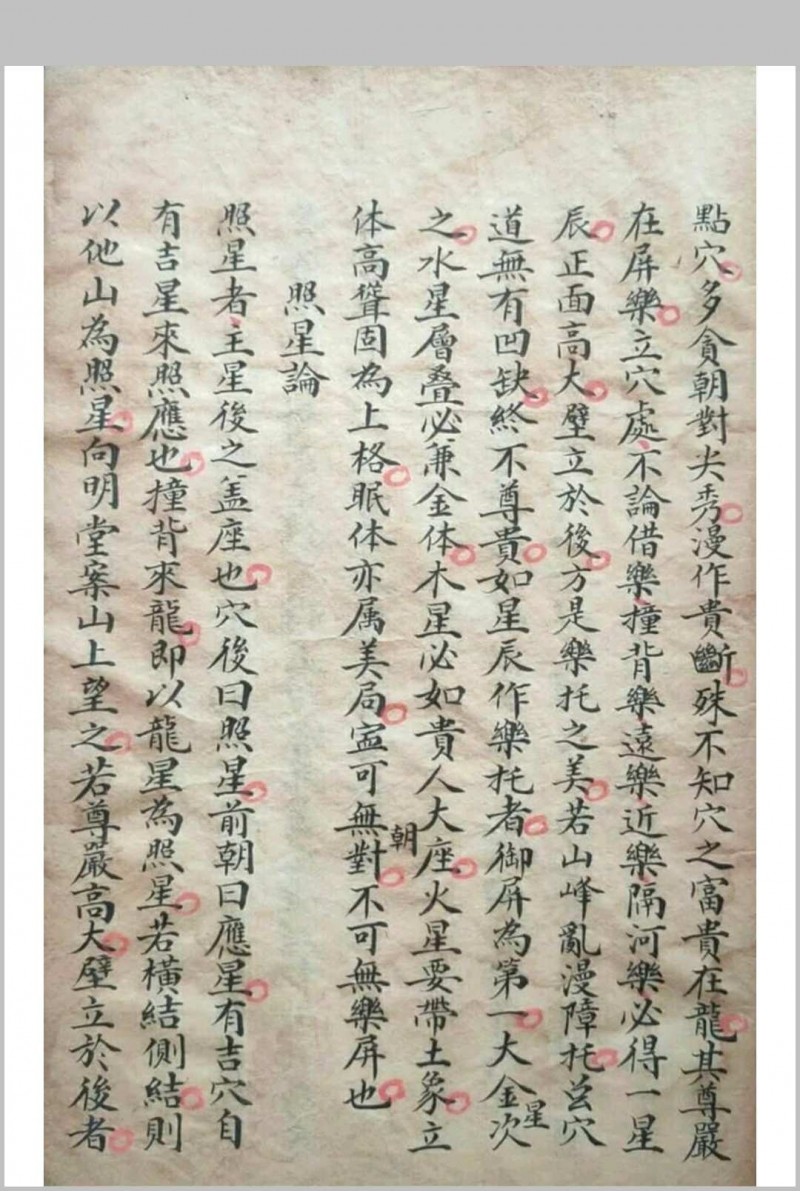 點穴多貪朝對尖秀漫作貴斷殊不知穴之富貴在龍其尊嚴
在屏樂立穴處不論借樂撞背樂遠樂近樂隔河樂必得一星
辰正面高大壁立於後方是樂托之美若山峰亂漫障托玄穴
道無有凹缺終不尊貴如星辰作樂托者御屏為第一大金星次
之水星層叠必兼金体木星必如貴人大座火星要帶土象立
体高聳固為上格眠体亦属美局寍可無朝對不可無樂屏也
照星論
照星者主星後之盖座也穴後曰照星前朝曰應星有吉穴自
有吉星來照應也撞背來龍即以龍星為照星若橫結側結則
以他山為照星向明堂案山上望之若尊嚴高大壁立於後者